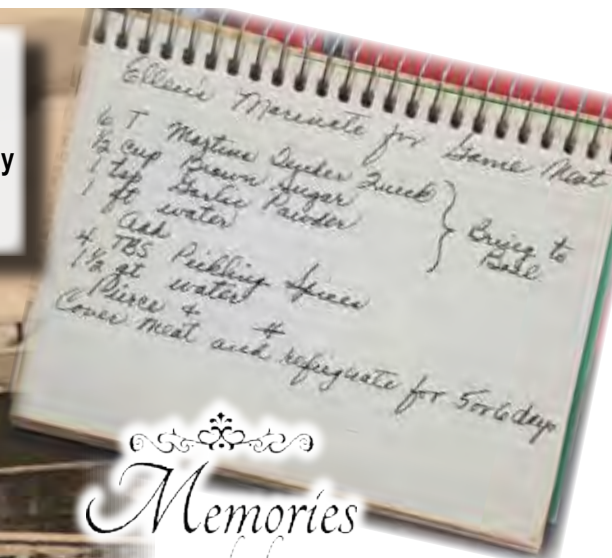 y
Ellen's Marinate for Game Meat
6 T Mortons Tender Quick
1/2 cup Brown Sugar
1 tsp Garlic Powder
1 water
Bring to Boil
Add
4 TBS Pickling Spices
1 1/2 qt water
Pierce &
Cover meat and refrigerate for 5 or 6 days
Memories